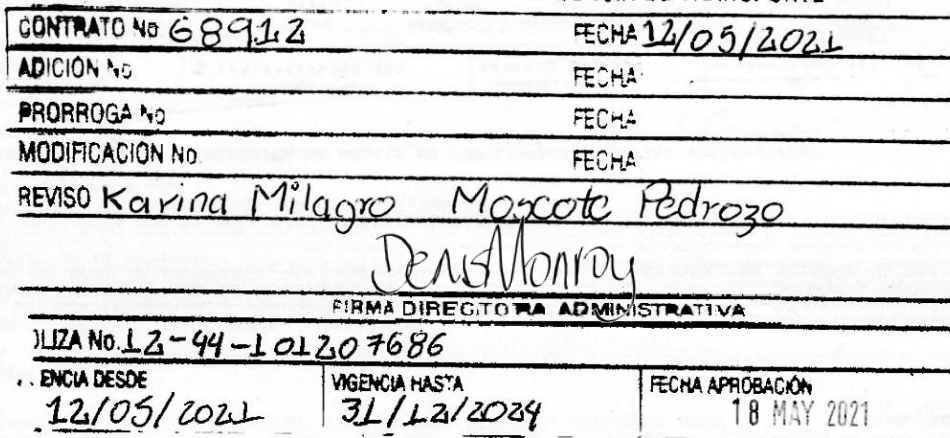 CONTRATO No 68912 FECHA 12/05/2021
ADICIÓN No FECHA:
PRORROGA No FECHA
MODIFICACION No. FECHA:
REVISO Karina Milagro Moscote Pedrozo
FIRMA DIRECTORA ADMINISTRATIVA
OLIZA No. 12-44-101207686
ENCIA DESDE VIGENCIA HASTA FECHA APROBACIÓN
12/05/2021 31/12/2024 18 MAY 2021